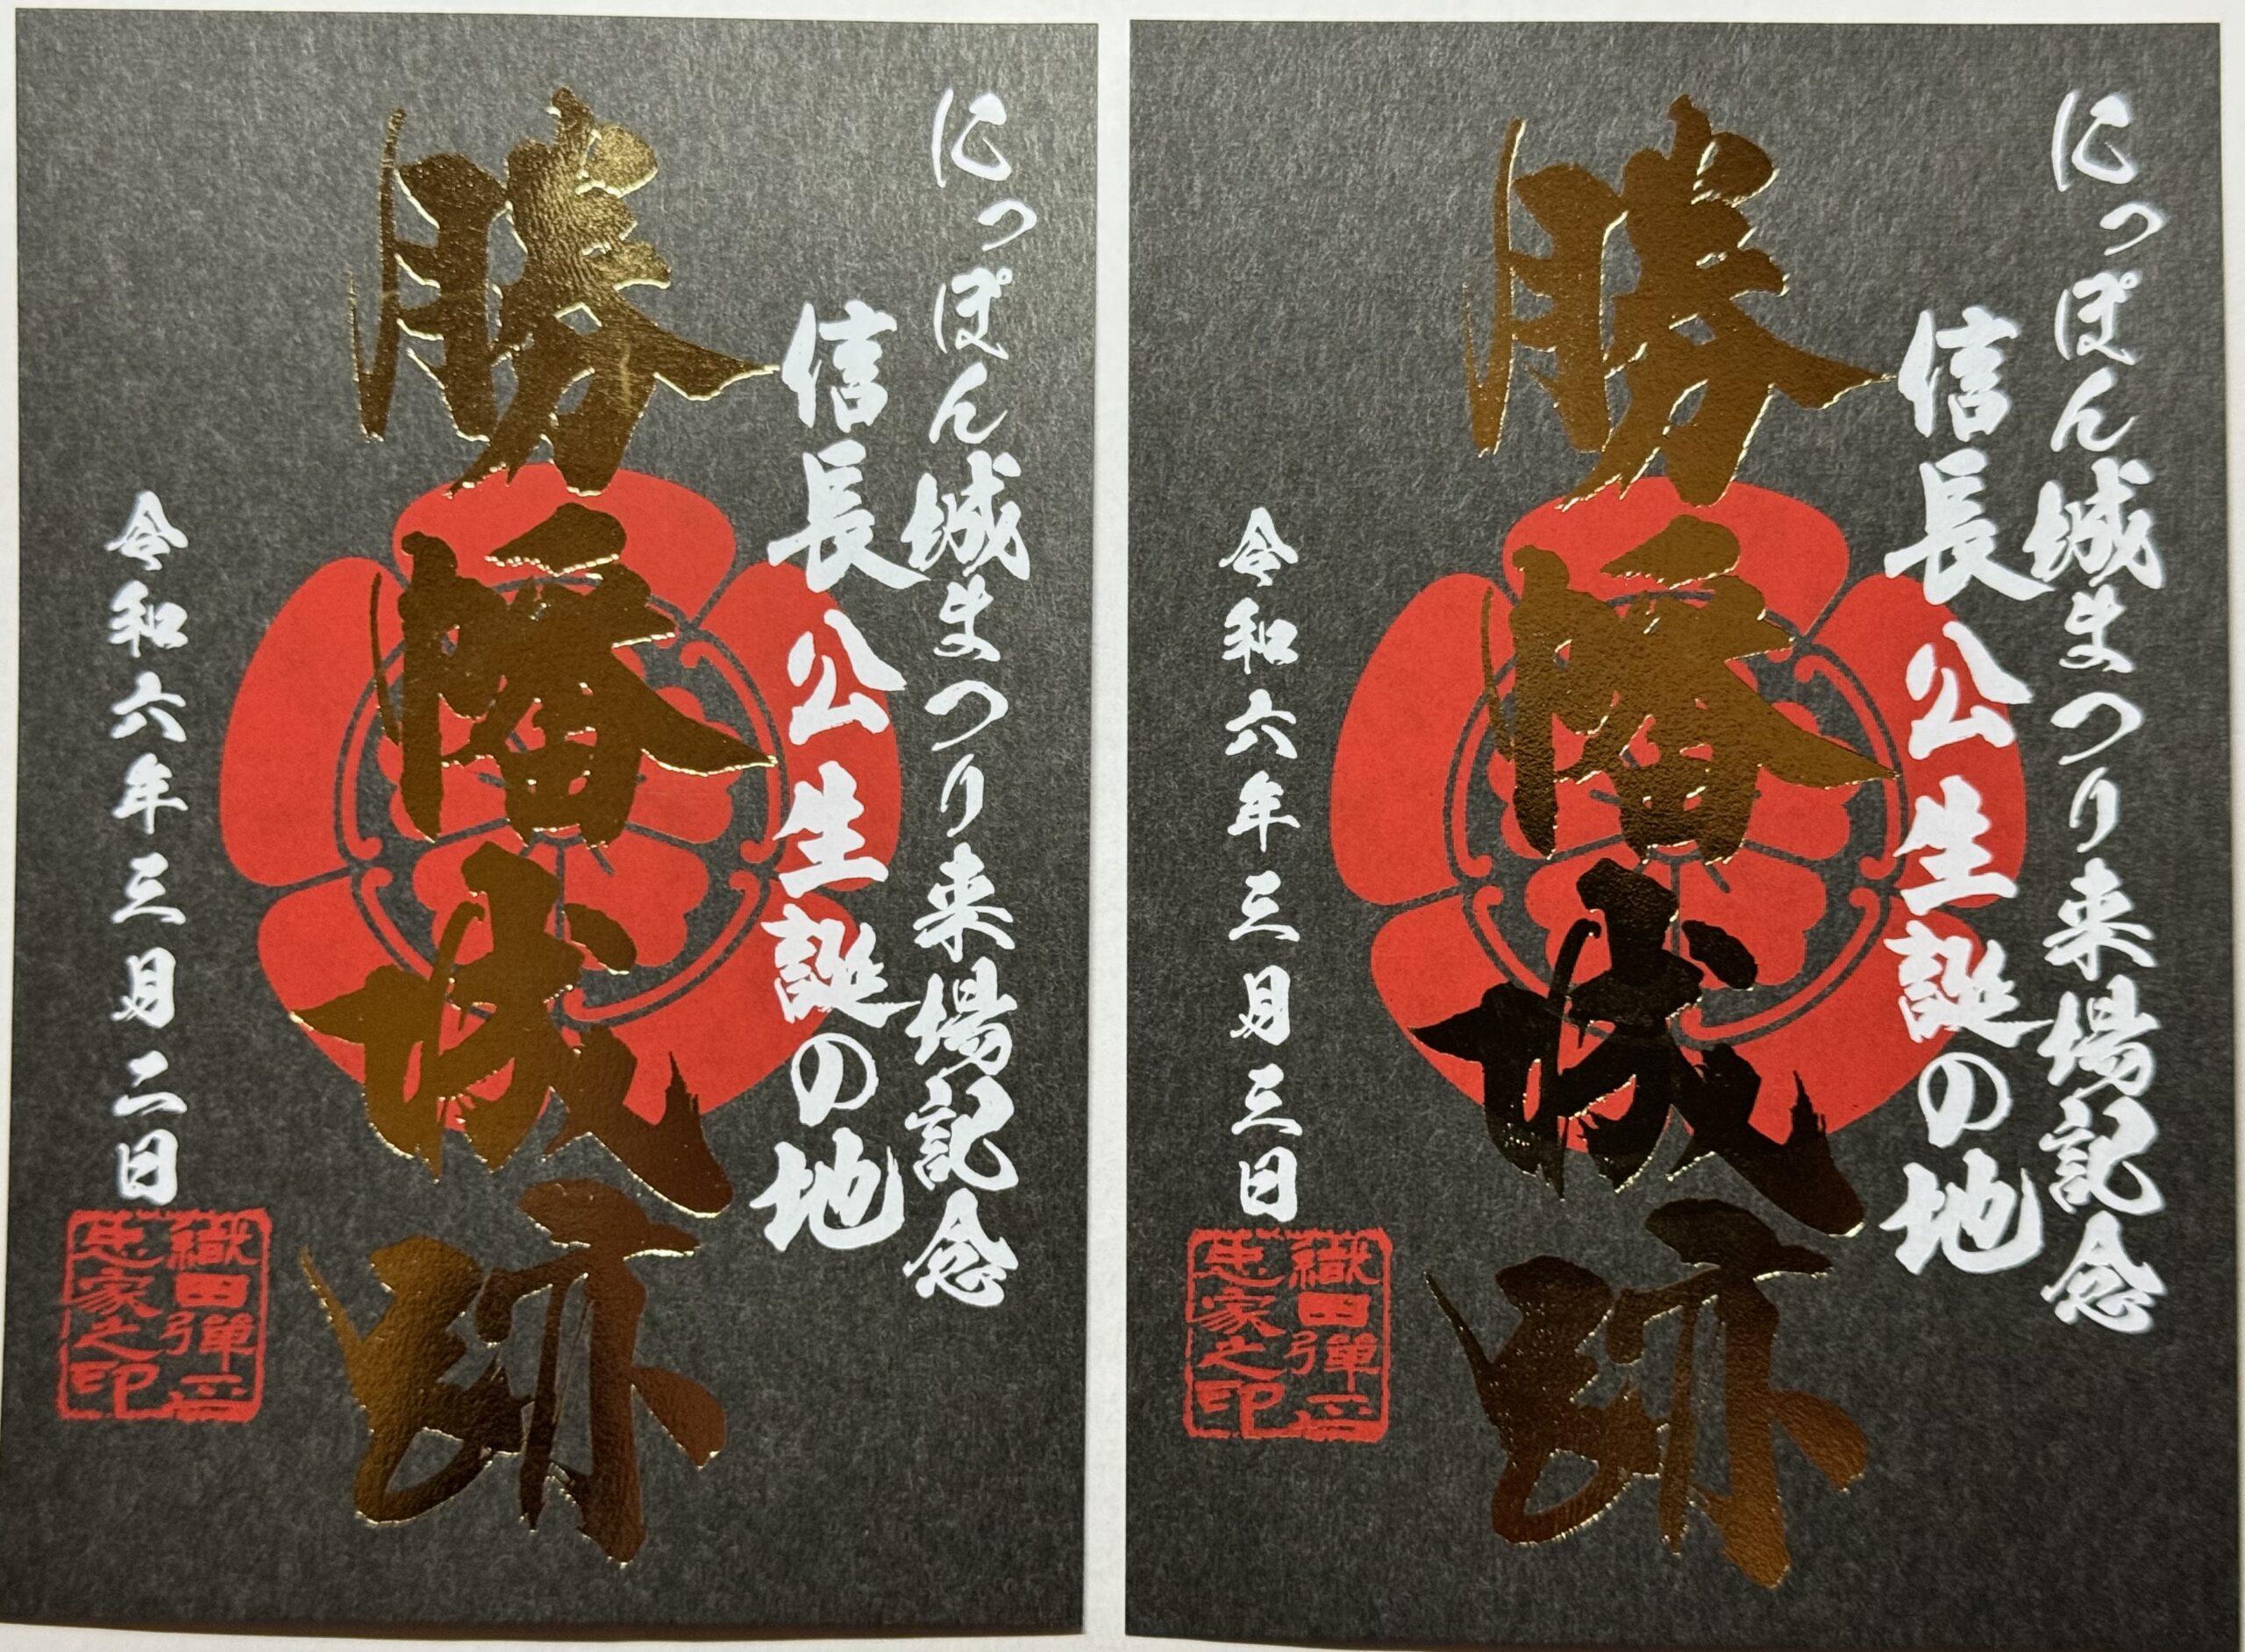 にっぽん城まつり来場記念
信長公生誕の地
勝幡城跡
令和六年三月二日
織田弾正
忠家之印
にっぽん城まつり来場記念
信長公生誕の地
勝幡城跡
令和六年三月三日
織田弾正
忠家之印